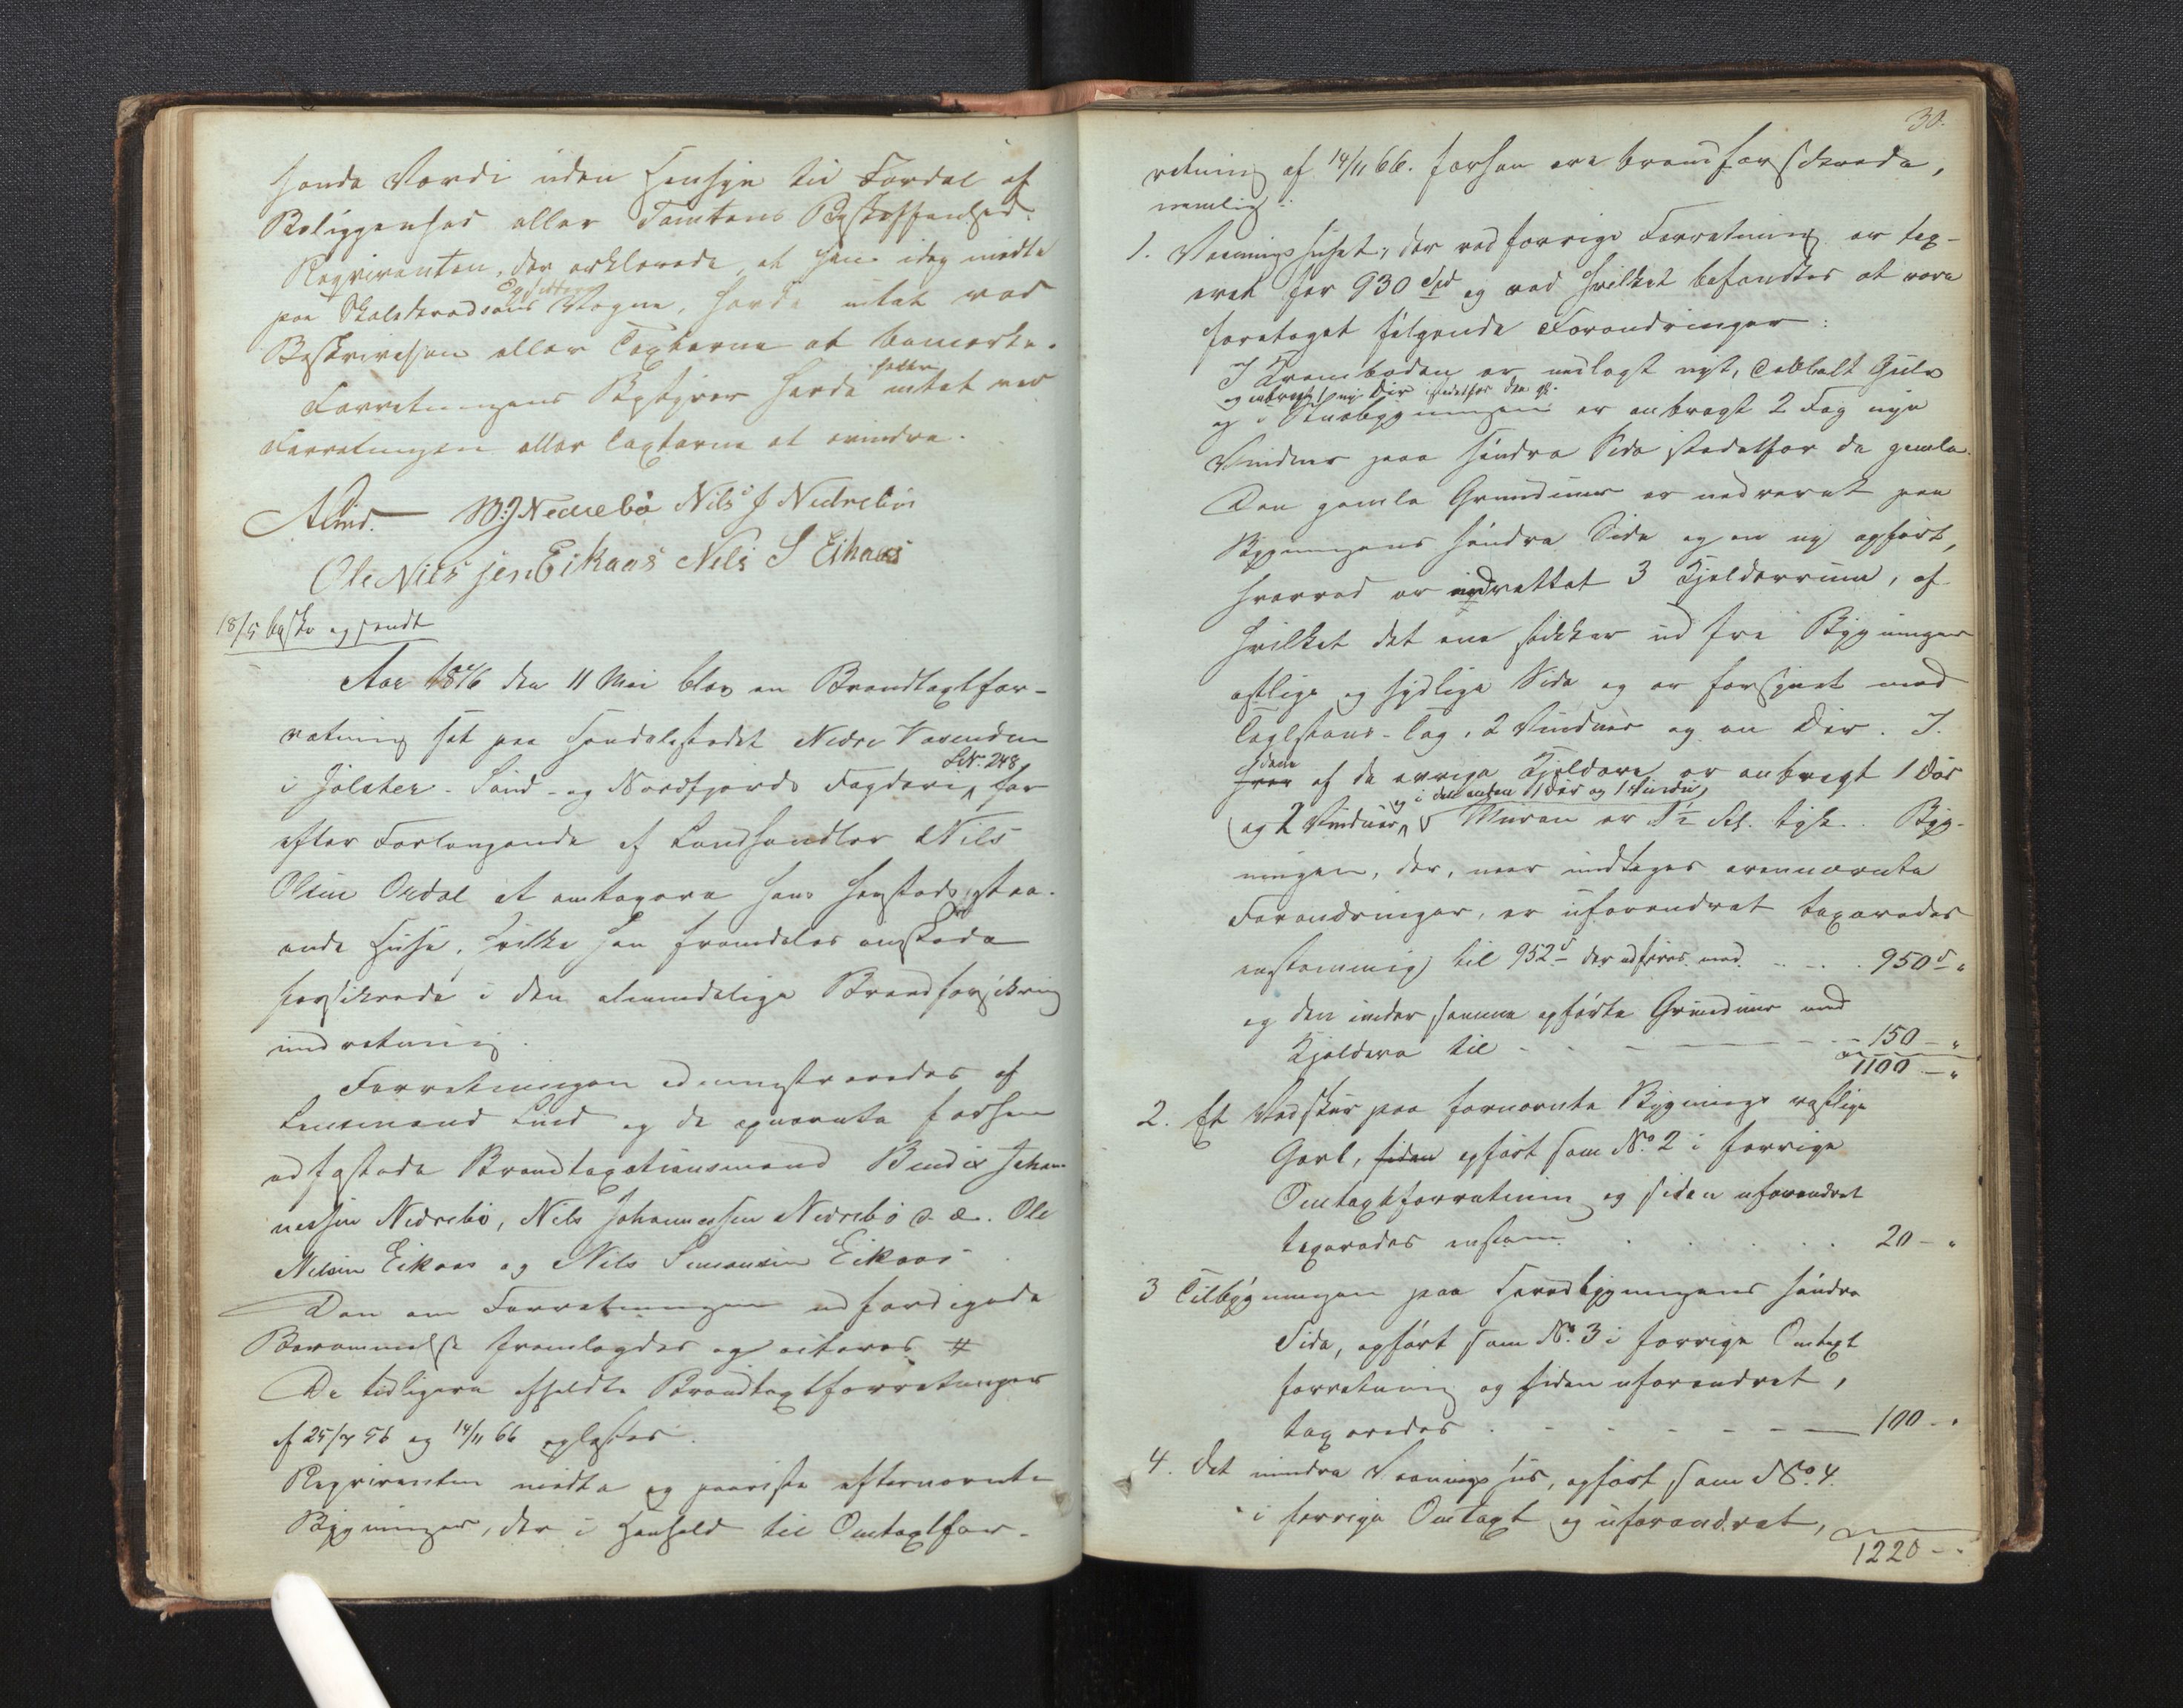 hende Værdi uden Hensyn til Fordel af
Beliggenhed eller Tomtens Beskaffenhed.
Reqvirenten, der erklærede, at han idag mødte
paa Vegne, havde intet ved
Beskrivelsen eller Taxterne at bemærke.
Forretningens Bestyrer havde heller intet ved
Forretningen eller Taxterne at erindre.
Lind. B. J. Nedrebø Nils J Nedrebøe
Ole Nielssen Eikaas Nils S Eikaas
18/5 besk. og sendt
Aar 1876 den 11 Mai blev en Brandtaxtfor-
retning sat paa Handelsstedet Nedre Vasenden
i Jølster - Sønd- og Nordfjords Fogderi LNr. 248, for
efter Forlangende af Landhandler Nils
Olsen Ordal at omtaxere hans sstaa-
ende Huse, hvilke han fremdeles ønskede
forsikrede i den almindelige Brandforsikrings
indretning.
Forretningen administreredes af
Lensmand Lind og de opnævnte forhen
edfæstede Brandtaxationsmænd Bendix Johan-
nessen Nedrebø, Nils Johannessen Nedrebø d. æ. Ole
Nilsen Eikaas og Nils Simonsen Eikaas
Den om Forretningen udfærdigede
Berammelse fremlagdes og citeres #
De tidligere afholdte Brandtaxtforretninger
af 25/7 56 og 14/11 66 oplæstes.
Reqvirenten mødte og paaviste efternævnte
Bygninger, der i Henhold til Omtaxtfor-
30.
retning af 14/11 66. forhen ere brandforsikrede,
nemlig:
1. Vaaningshuset, der ved forrige Forretning er tax-
eret for 930 Spd og ved hvilket befandtes at være
foretaget følgende Forandringer:
I Krambøden er nedlagt nyt, dobbelt Gulv
og indbragt ny Dør istedetfor den gl.
og i bygningen er anbragt 2 Fag nye
Vinduer paa søndre Side istedetfor de gamle.
Den gamle Grundmur er nedrevet paa
Bygningens søndre Side og en ny opført,
hvorved er indrettet 3 Kjelderrum, af
hvilket det ene stikker ud fra Bygningens
østlige og sydlige Side og er forsynet med
Taglstens-Tag, 2 Vinduer og en Dør. I
hver dene af de øvrige Kjeldere er anbragt 1 Dør
og 2 Vinduer, og i den anden 1 Dør og 1 Vindu, Muren er 1 1/2 Al. tyk. Byg-
ningen, der, naar undtages ovennævnte
Forandringer, er uforandret taxeredes
enstemmig til 952 S der udføres med - - . 950 S "
og den under samme opførte Grundmur med
Kjeldere til - - - 150 - "
1100 - "
2. Et Vedskur paa fornævnte Bygnings vestlige
Gavl, siden opført som No. 2 i forrige
Omtaxtforretning og siden uforandret
taxeredes enstem. . . . . 20 - "
3 Tilbygningen paa Hovedbygningens søndre
Side, opført som No. 3 i forrige Omtaxt
forretning og siden uforandret,
taxeredes . - - - - 100 - "
4. Det mindre Vaaningshus, opført som No. 4.
i forrige Omtaxt og uforandret,
1220 - "